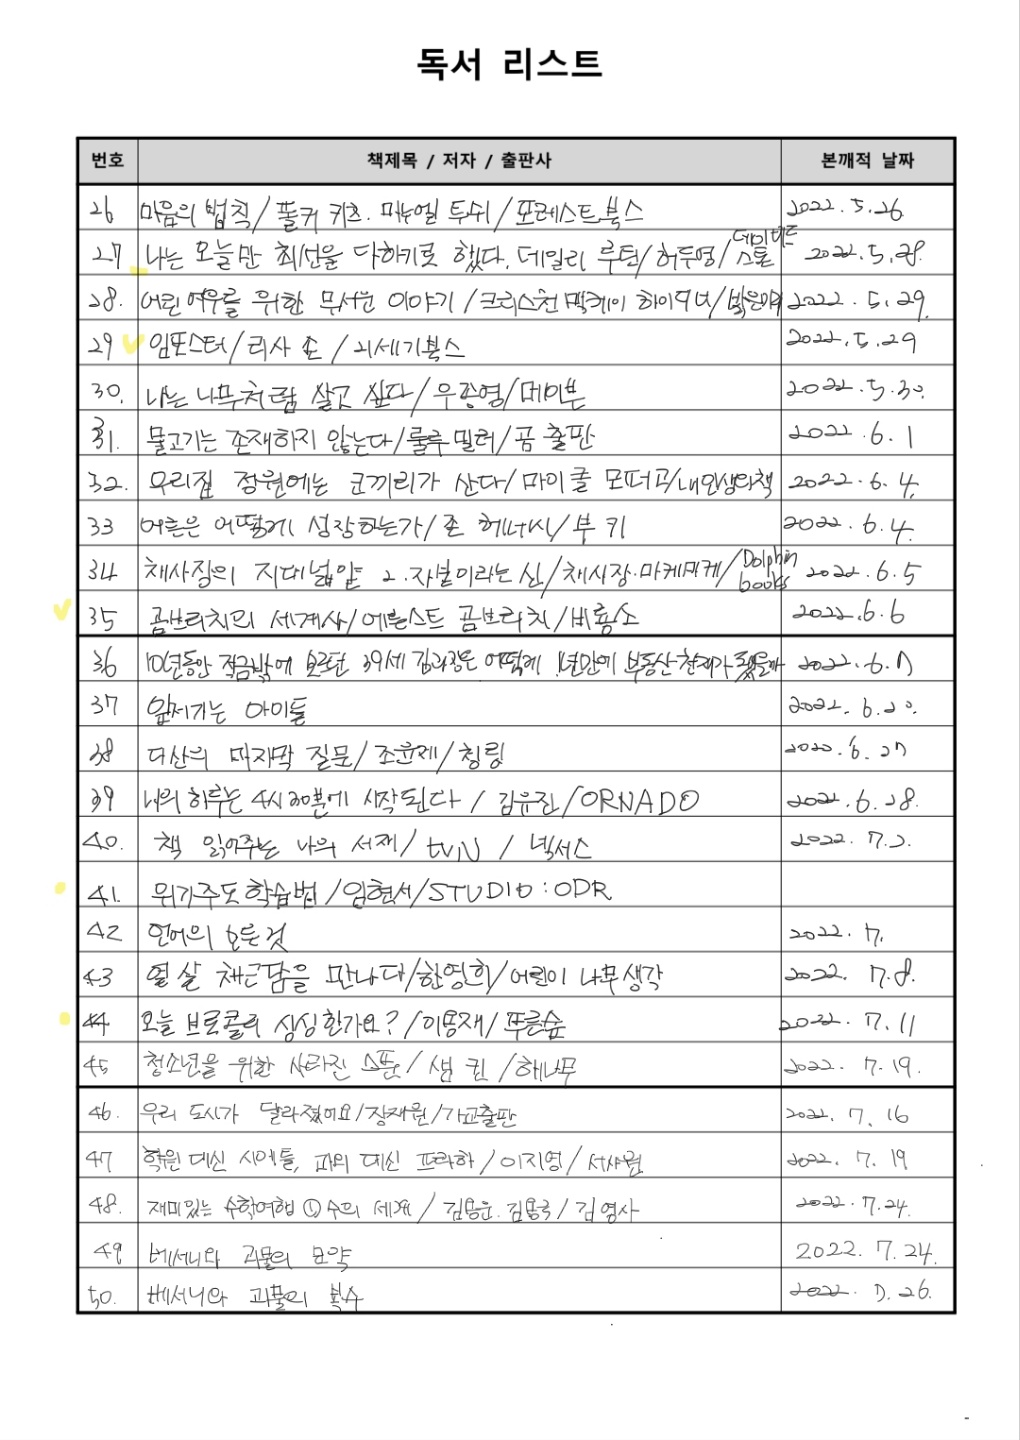 독서 리스트
번호 책제목 / 저자 / 출판사 본깨적 날짜
26 마음의 법칙/폴커 키츠. 마누엘 투쉬/포레스트북스 2022.5.26
27 나는 오늘만 최선을 다하기로 했다. 데일리 루틴/허두영/데이비드스톤 2022.5.28.
28. 어린 여우를 위한 무서운 이야기/크리스천 맥케이 하이디커/밝은미래 2022.5.29.
29 임포스터/리사 손/21세기북스 2022.5.29
30. 나는 나무처럼 살고 싶다/우종영/메이븐 2022.5.30.
31. 물고기는 존재하지 않는다/룰루 밀러/곰 출판 2022.6.1
32. 우리집 정원에는 코끼리가 산다/마이클 모퍼고/내인생의책 2022.6.4.
33 어른은 어떻게 성장하는가/존 헤네시/부 키 2022.6.4.
34 채사장의 지대넓얕 2.자본이라는 신/채사장.마케마케/Dolphin books 2022.6.5
35 곰브리치의 세계사/에른스트 곰브리치/비룡소 2022.6.6
36 10년동안 적금밖에 모르던 39세 김과장은 어떻게 1년만에 부동산천재가 됐을까 2022.6.7
37 앞지기는 아이들 2022.6.20.
38 다산의 마지막 질문/조윤제/청림 2022.6.27
39 나의 하루는 4시 30분에 시작된다 / 김유진/ORNADO 2022.6.28.
40. 책 읽어주는 나의 서재/ tvN / 넥서스 2022. 7.2.
41. 위기주도학습법/임현서/STUDIO:ODR
42 언어의 모든것 2022.7.
43 열 살 채근담을 만나다/한영희/어린이 나무생각 2022. 7.8.
44. 오늘 브로콜리 싱싱한가요?/이용재/푸른숲 2022. 7.11
45 청소년을 위한 사라진 스푼/ 샘 킨 /해나무 2022. 7.19.
46. 우리 도시가 달라졌어요/장재원/가교출판 2022. 7. 16
47 학원 대신 시애틀, 과외 대신 프라하/이지영/서사원 2022. 7. 19
48. 재미있는 수학여행 ① 수의 세계/ 김용운.김용국/김영사 2022.7.24.
49 베서니와 괴물의 묘약 2022. 7.24.
50. 베서니와 괴물의 복수 2022. 7.26.